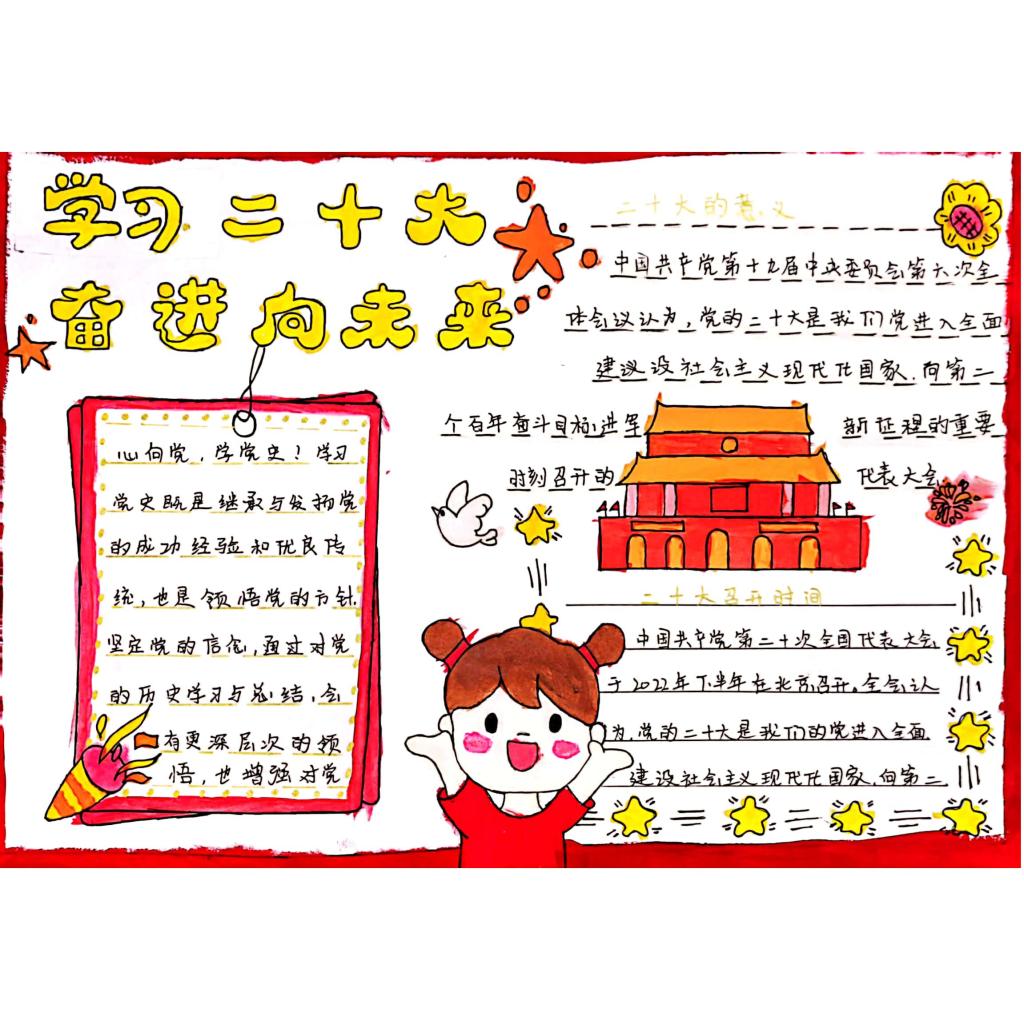 学习二十大
奋进向未来
心向党，学党史！学习
党史既是继承与发扬党
的成功经验和优良传
统，也是领悟党的方针
坚定党的信念，通过对党
的历史学习与总结，会
有更深层次的领
悟，也增强对党
二十大的意义
中国共产党第十九届中央委员会第六次全
体会议认为，党的二十大是我们党进入全面
建议设社会主义现代化国家，向第二
个百年奋斗目标进军 新征程的重要
时刻召开的 代表大会
二十大召开时间
中国共产党第二十次全国代表大会
于2022年下半年在北京召开。全会认
为，党的二十大是我们的党进入全面
建设社会主义现代化国家，向第二